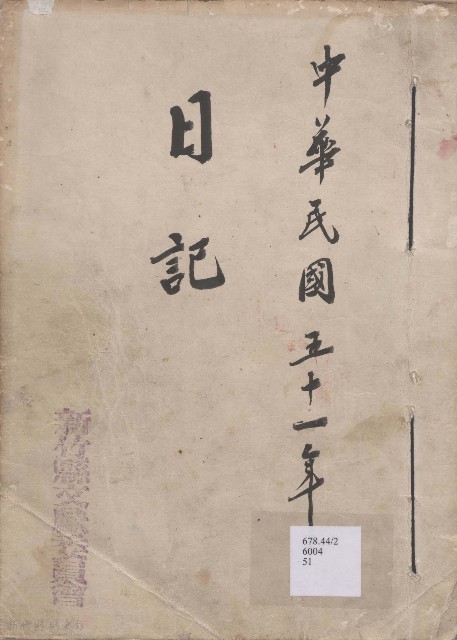 中華民國五十一年
日記
新竹縣文獻委員會
678.44/2
6004
51